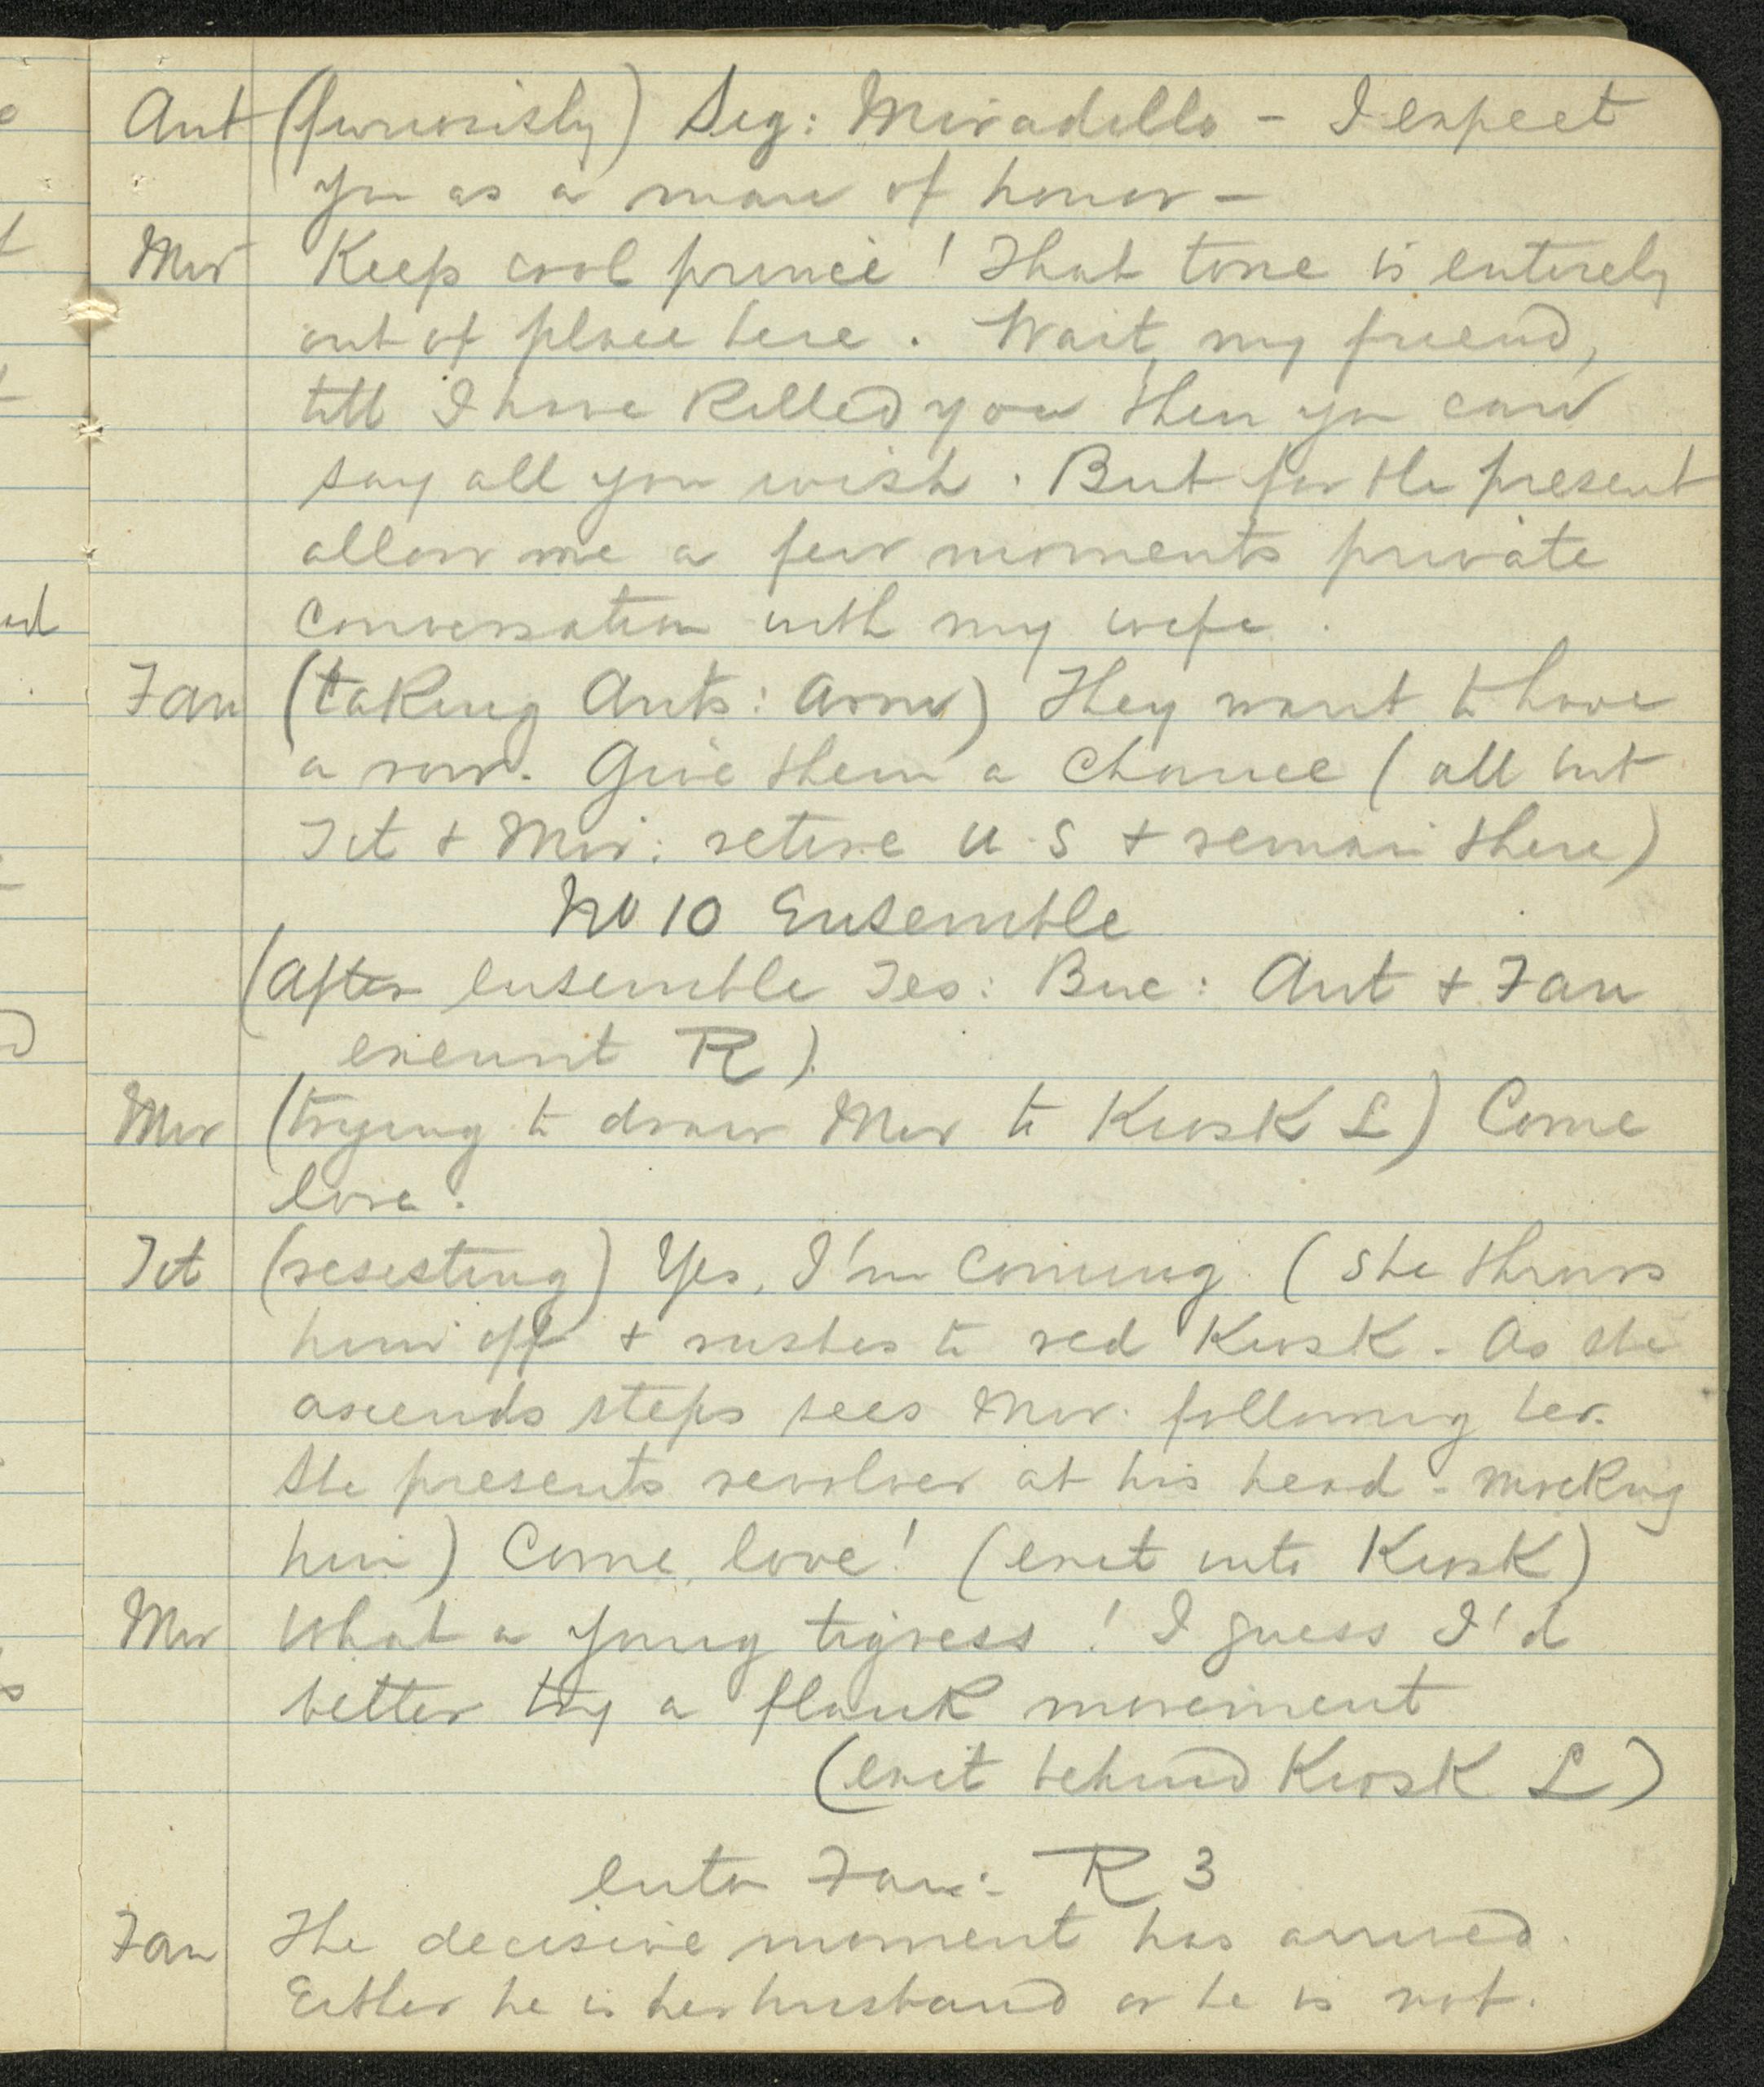 Ant (furiously) Sig: Miradillo - I expect
you as a man of honor -
Mir Keep cool prince! That tone is entirely
out of place here. Wait, my friend,
till I have killed you then you can
say all you wish. But for the present
allow me a few moments private
conversation with my wife.
Fan (taking Ants: arm) They want to have
a row. Give them a chance (all but
Tit + Mir: retire U.S + remain there)
No 10 Ensemble
(After ensemble Tes: Buc: Ant + Fan
exeunt R)
Mir (trying to draw Mir to Kiosk L) Come
love.
Tit (resisting) Yes, I'm coming. (She throws
him off + rushes to red Kiosk - As she
ascends steps sees Mir. following her.
She presents revolver at his head - mocking
him) Come, love! (exit into Kiosk)
Mir What a young tigress! I guess I'd
better try a flank movement
(exit behind Kiosk L)
enter Fan: R 3
Fan The decisive moment has arrived.
Either he is her husband or he is not.